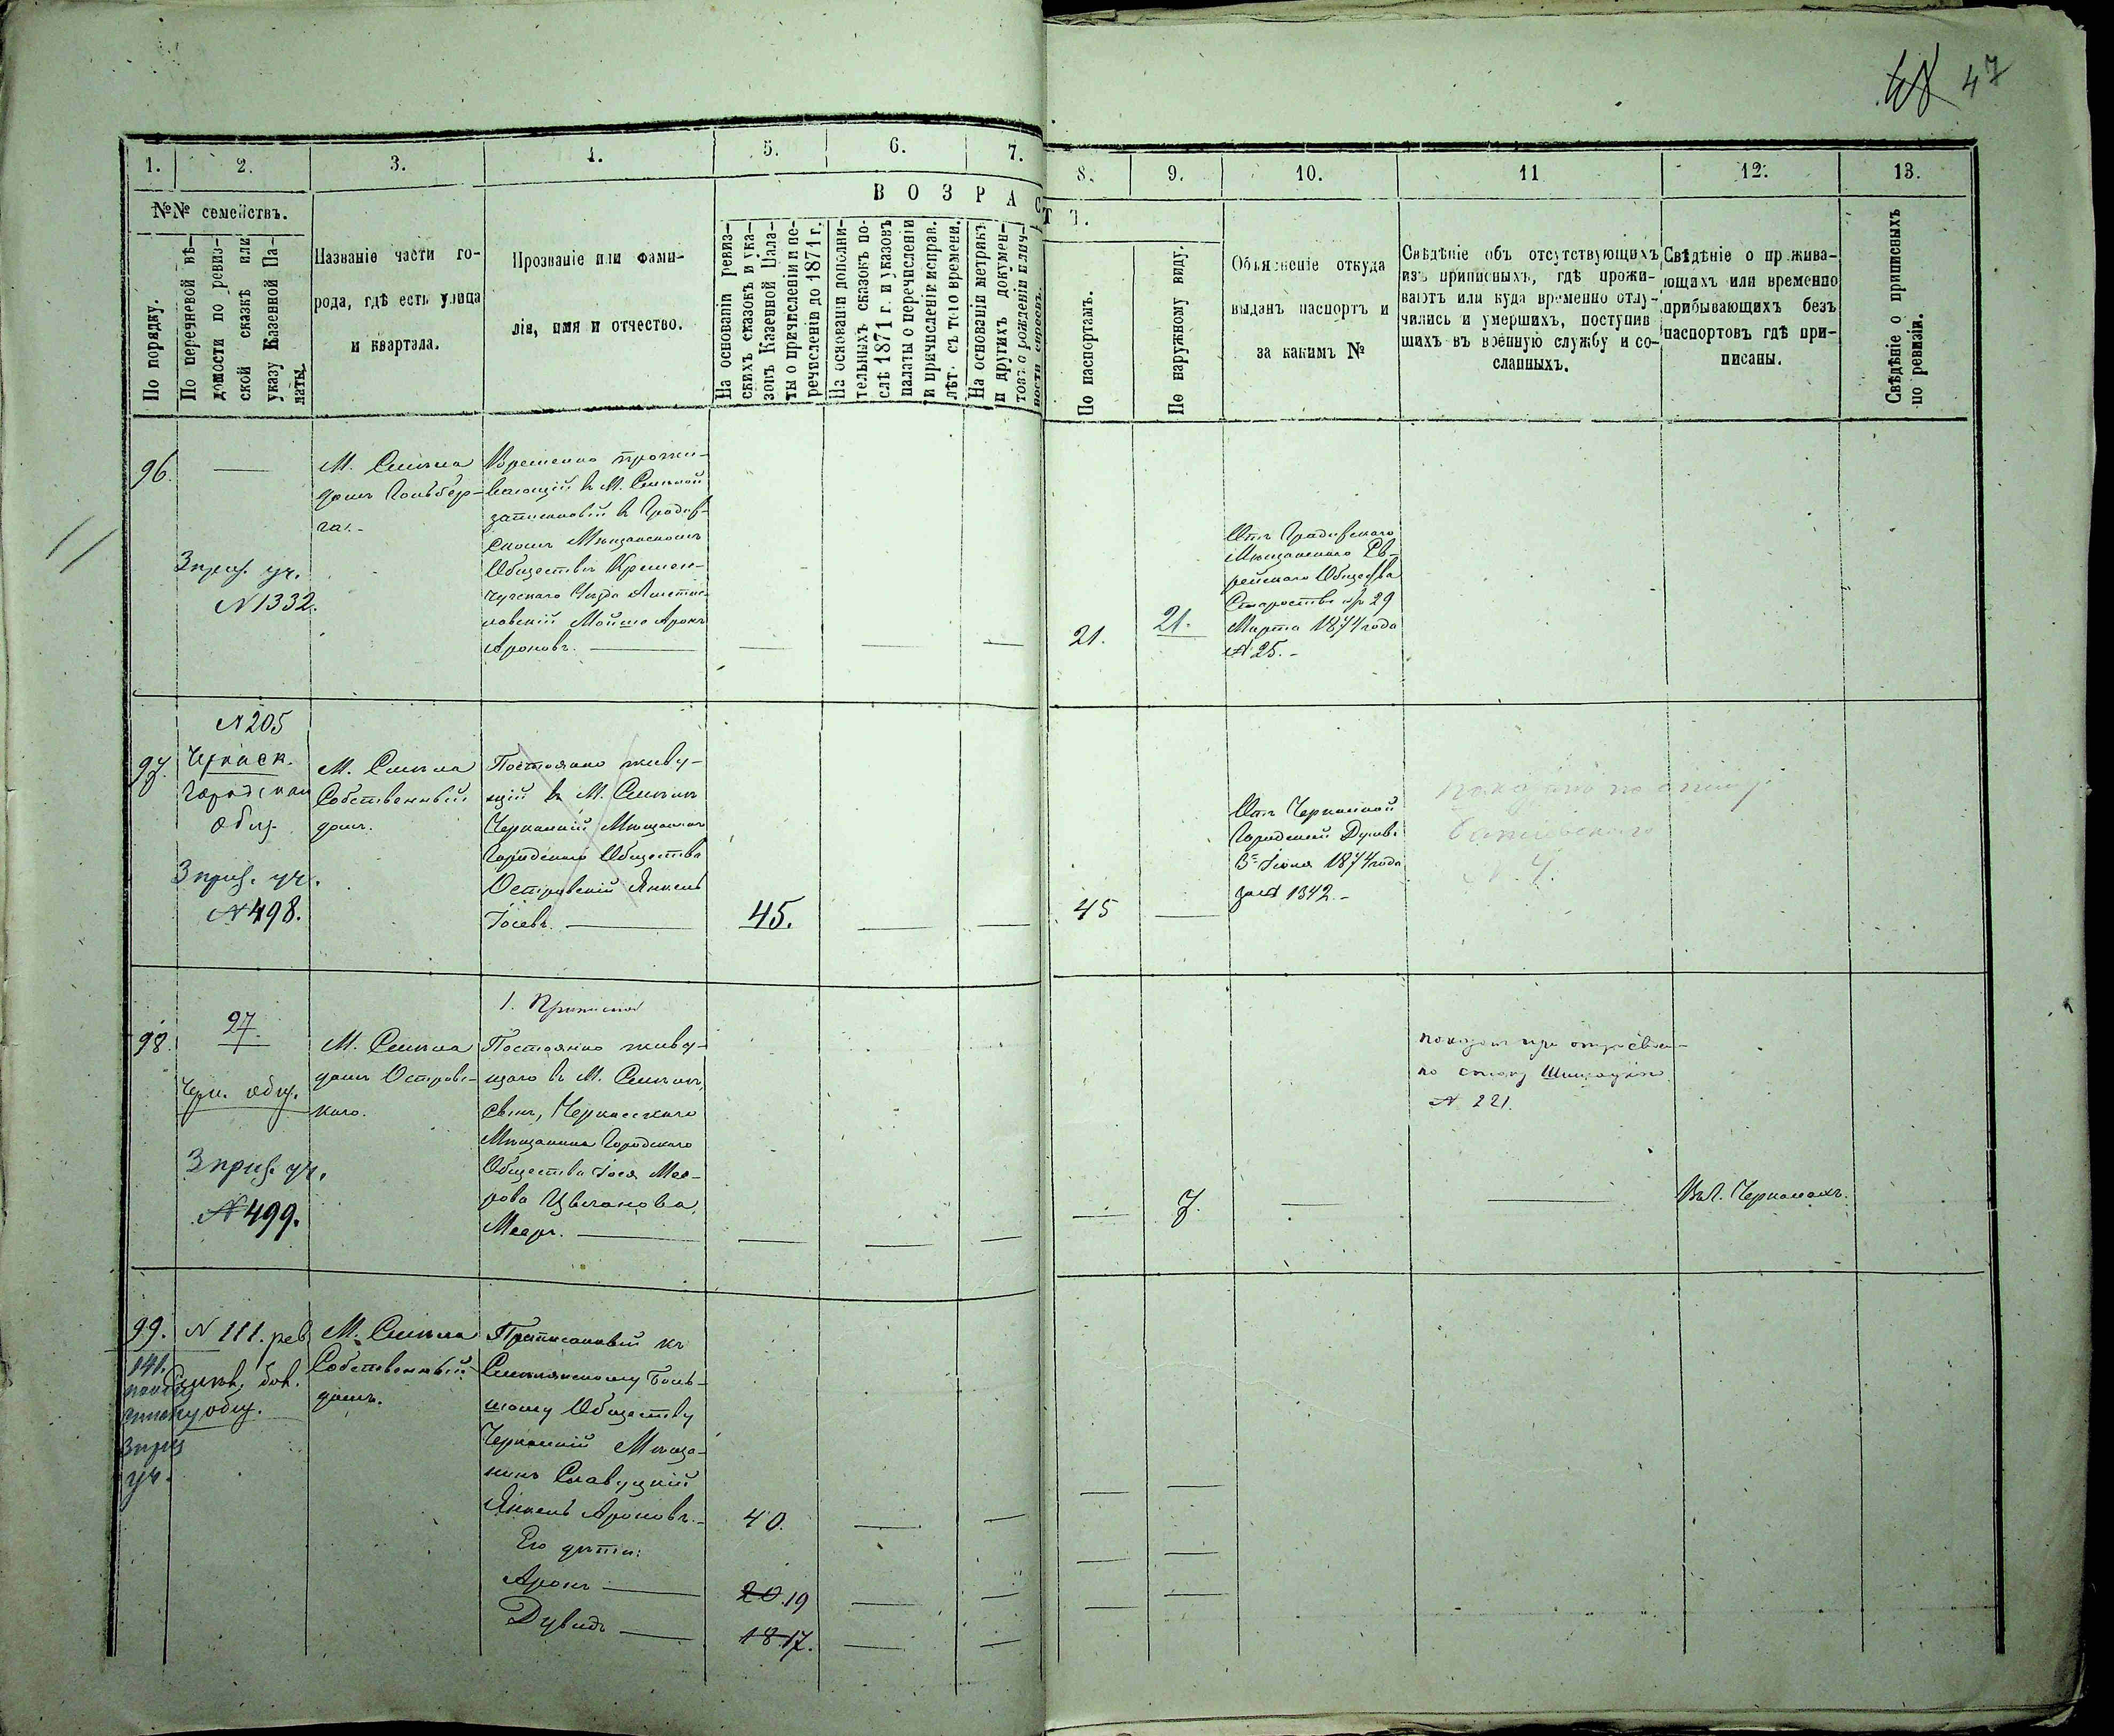 47
1.
2.
3.
4.
5.
6.
7.
8.
9.
10.
11
12.
13.
ВОЗРАСТЪ.
№№ семействъ.
По порядку.
По перечневой вѣ-
домости по ревиз-
ской сказкѣ или
указу Казенной Па-
латы.
Названіе части го-
рода, гдѣ есть улица
и квартала.
Прозваніе или фами-
лія, имя и отчество.
На основаніи ревиз-
скихъ сказокъ и ука-
зовъ Казенной Пала-
ты о причисленіи и пе-
речисленіи до 1871 г.
На основаніи дополни-
тельныхъ сказокъ по-
слѣ 1871 г. и указовъ
палаты о перечисленіи
и причисленіи исправ.
лѣт. съ того времени.
На основаніи метрикъ
и другихъ докумен-
товъ о рожденіи и лич-
ности евреевъ.
По паспортамъ.
По наружному виду.
Объясненіе откуда
выданъ паспортъ и
за какимъ №
Свѣдѣніе объ отсутствующихъ
изъ приписныхъ, гдѣ прожи-
ваютъ или куда временно отлу-
чились и умершихъ, поступив
шихъ въ военную службу и со-
сланныхъ.
Свѣдѣніе о прожива-
ющихъ или временно
прибывающихъ безъ
паспортовъ гдѣ при-
писаны.
Свѣдѣніе о приписныхъ
по ревизіи.
96.
3 приз. уч.
№ 1332.
М. Смѣла
домъ Гольбер-
га.-
Временно прожи-
вающій въ М. Смѣлой
записанный въ Градиж-
скомъ Мѣщанскомъ
Обществѣ Кременчугского Уѣзда
Мойше Аронъ
Ароновъ.
21.
21.
Отъ Градижскаго
Мѣщанскаго Ев-
рейскаго Общества
Старосты 29
Марта 1874 года
№ 25.-
97.
№ 205
Черкаск.
Городском
Общ.
3 приз. уч.
№ 498.
М. Смѣла
Собственный
домъ.
Постоянно живу-
щій въ М. Смѣлѣ
Черкаскій Мѣщанинъ
Городскаго Общества
Островскій Янкель
Іосевъ.
45.
45
Отъ Черкаской
Городской Думы
3 Іюня 1874 года
за № 1342.-
№ 4.
98.
27.
Черк. общ.
3 приз. уч.
№ 499.
М. Смѣла
домъ Островс-
каго.
1. Приписной
Постоянно живу-
щаго въ М. Смѣлѣ,
сынъ, Черкасскаго
Мѣщанина Городскаго
Общества Іося Мее-
рова Цыганова
Мееръ.
7.
показанъ при отцѣ своем
по списку
№ 221.
Въ г. Черкасахъ.
99.
№ 111. рев
141.
Смѣл. бол.
общ.
3 приз
уч.
М. Смѣла
Собственный
домъ.
Приписанный къ
Смѣлянскому Боль-
шому Обществу
Черкаскій Мѣща-
нинъ Славуцкій
Янкель Ароновъ.-
40.
Его дѣти:
Аронъ
20. 19
Дувидъ
18 17.